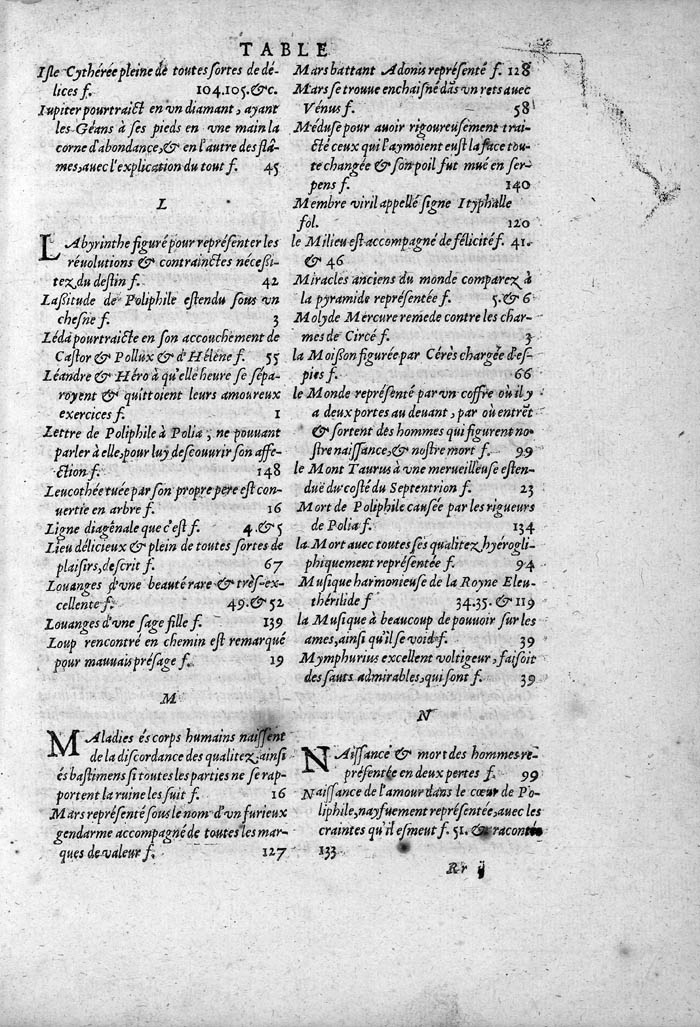 TABLE
Isle Cythérée pleine de toutes sortes de dé-
lices f. 104.105.&c.
Iupiter pourtraict en vn diamant, ayant
les Géans à ses pieds en vne main la
corne d'abondance,& en l'autre des flâ-
mes,avec l'explication du tout f. 45
L
LAbyrinthe figuré pour représenter les
révolutions & contrainctes nécessi-
tez du destin f. 42
Lassitude de Poliphile estendu sous vn
chesne f. 3
Léda pourtraicte en son accouchement de
Castor & Pollux & d'Hélène f. 55
Léandre & Héro à qu'elle heure se sépa-
royent & quittoient leurs amoureux
exercices f. 1
Lettre de Poliphile à Polia , ne pouvant
parler à elle,pour luy descouvrir son affe-
ction f. 148
Leucothée tuée par son propre pere est con-
vertie en arbre f. 16
Ligne diagénale que c'est f. 4.&5
Lieu délicieux & plein de toutes sortes de
plaisirs,descrit f. 67
Louanges d'vne beauté rare & très-ex-
cellente f. 49.& 52
Louanges d'vne sage fille f. 139
Loup rencontré en chemin est remarqué
pour mauvais présage f. 19
M
MAladies és corps humains naissent
de la discordance des qualitez,ainsi
és bastimens si toutes les parties ne se rap-
portent la ruine les suit f. 16
Mars représenté sous le nom d'vn furieux
gendarme accompagné de toutes les mar-
ques de valeur f. 127
Mars battant Adonis représenté f. 128
Mars se trouve enchaisné dãs vn rets avec
Vénus f. 58
Méduse pour auoir rigoureusement trai-
cté ceux qui l'aymoient eust la face tou-
te changée & son poil fut mué en ser-
pens f. 140
Membre viril appellé signe Ityphalle
fol. 120
le Milieu est accompagné de félicité f. 41.
& 46
Miracles anciens du monde comparez à
la pyramide représentée f. 5.& 6
Moly de Mercure remede contre les char-
mes de Circé f. 3
la Moisson figurée par Cérès chargée d'es-
pies f. 66
le Monde représenté par vn coffre où il y
a deux portes au devant , par où entrẽt
& sortent des hommes qui figurent no-
stre naissance,& nostre mort f. 99
le Mont Taurus à vne merveilleuse esten-
duë du costé du Septentrion f. 23
Mort de Poliphile causée par les rigueurs
de Polia f. 134
la Mort avec toutes ses qualitez hyérogli-
phiquement représentée f. 94
Musique harmonieuse de la Royne Eleu-
thérilide f 34.35. & 119
la Musique à beaucoup de pouvoir sur les
ames,ainsi qu'il se void f. 39
Mymphurius excellent voltigeur , faisoit
des sauts admirables,qui sont f. 39
N
NAissance & mort des hommes re-
présentée en deux pertes f. 99
Naissance de l'amour dans le cœur de Po-
liphile,nayfuement représentée,avec les
craintes qu'il esmeut f. 51. & racontée
133
Rr ij